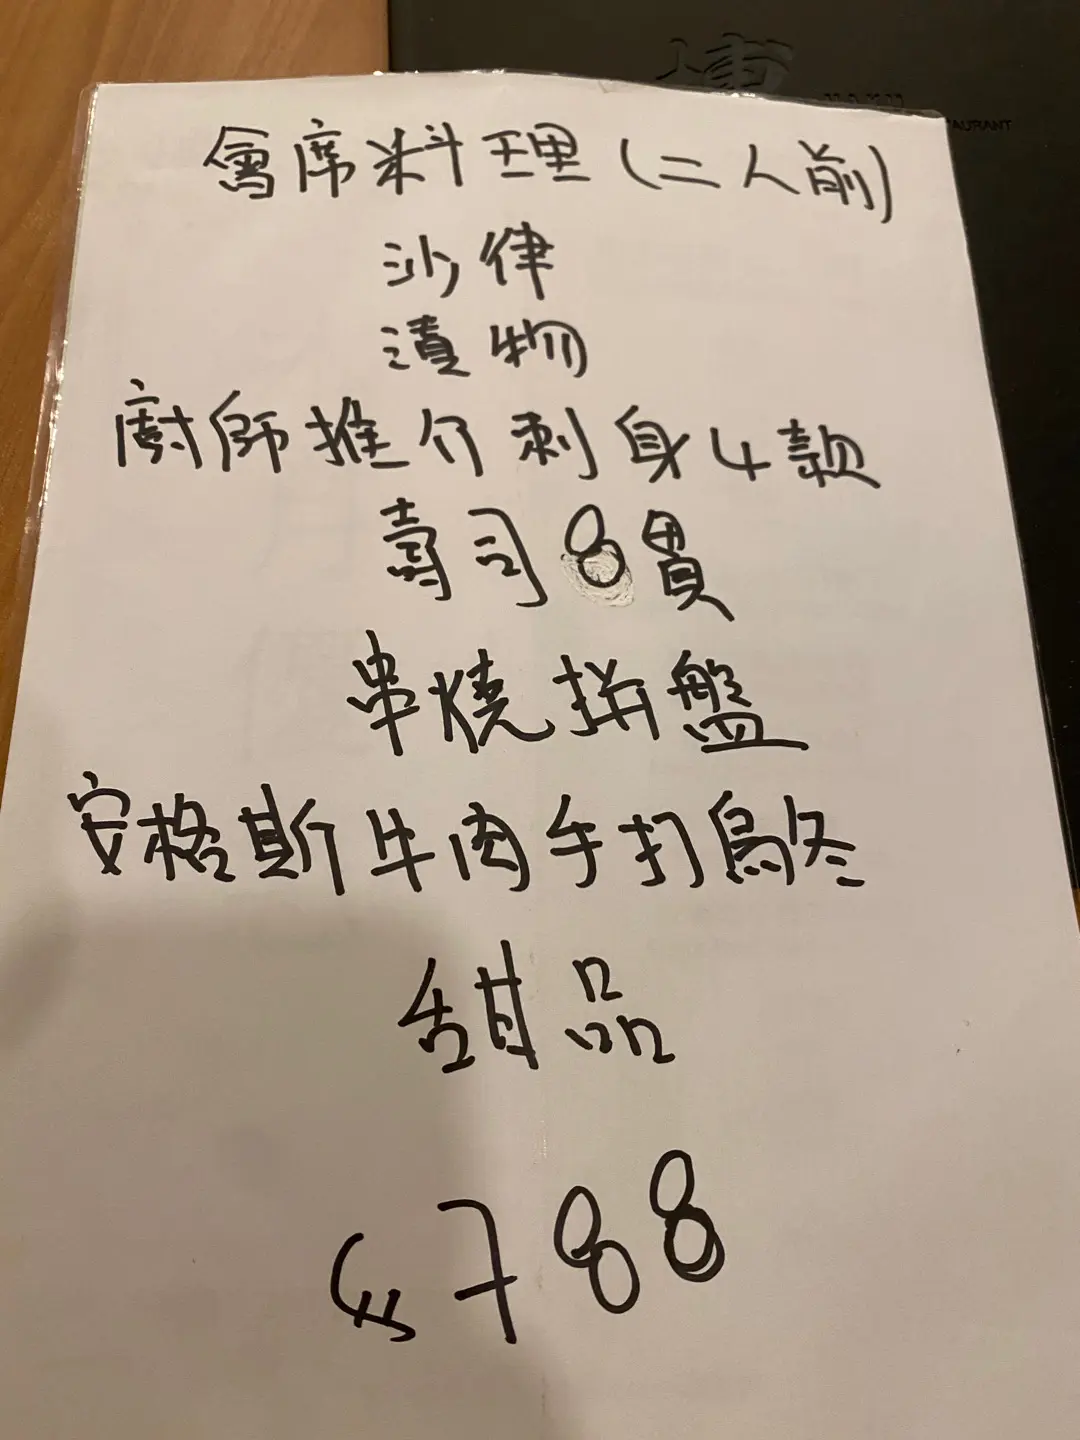 HAKU
AURANT
會席料理(二人前)
沙律
漬物
廚師推介刺身4款
壽司8貫
串燒拼盤
安格斯牛肉手打烏冬
甜品
$788